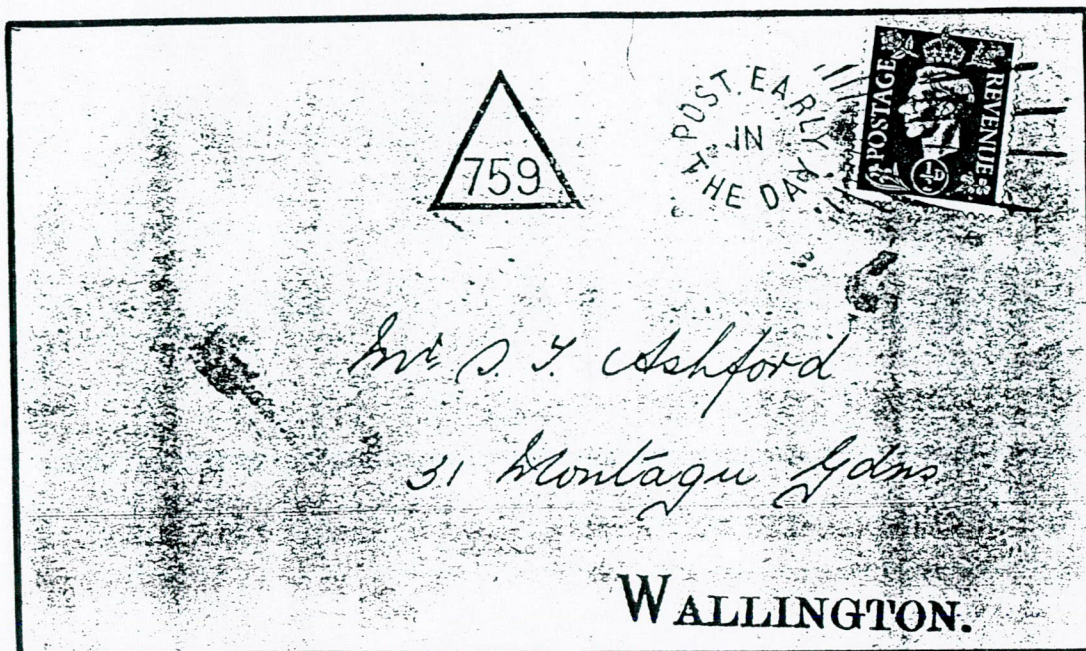 759
POST EARLY
IN
THE DAY
POSTAGE REVENUE
½D
Mr S. T. Ashford
31 Montagu Gdns
WALLINGTON.